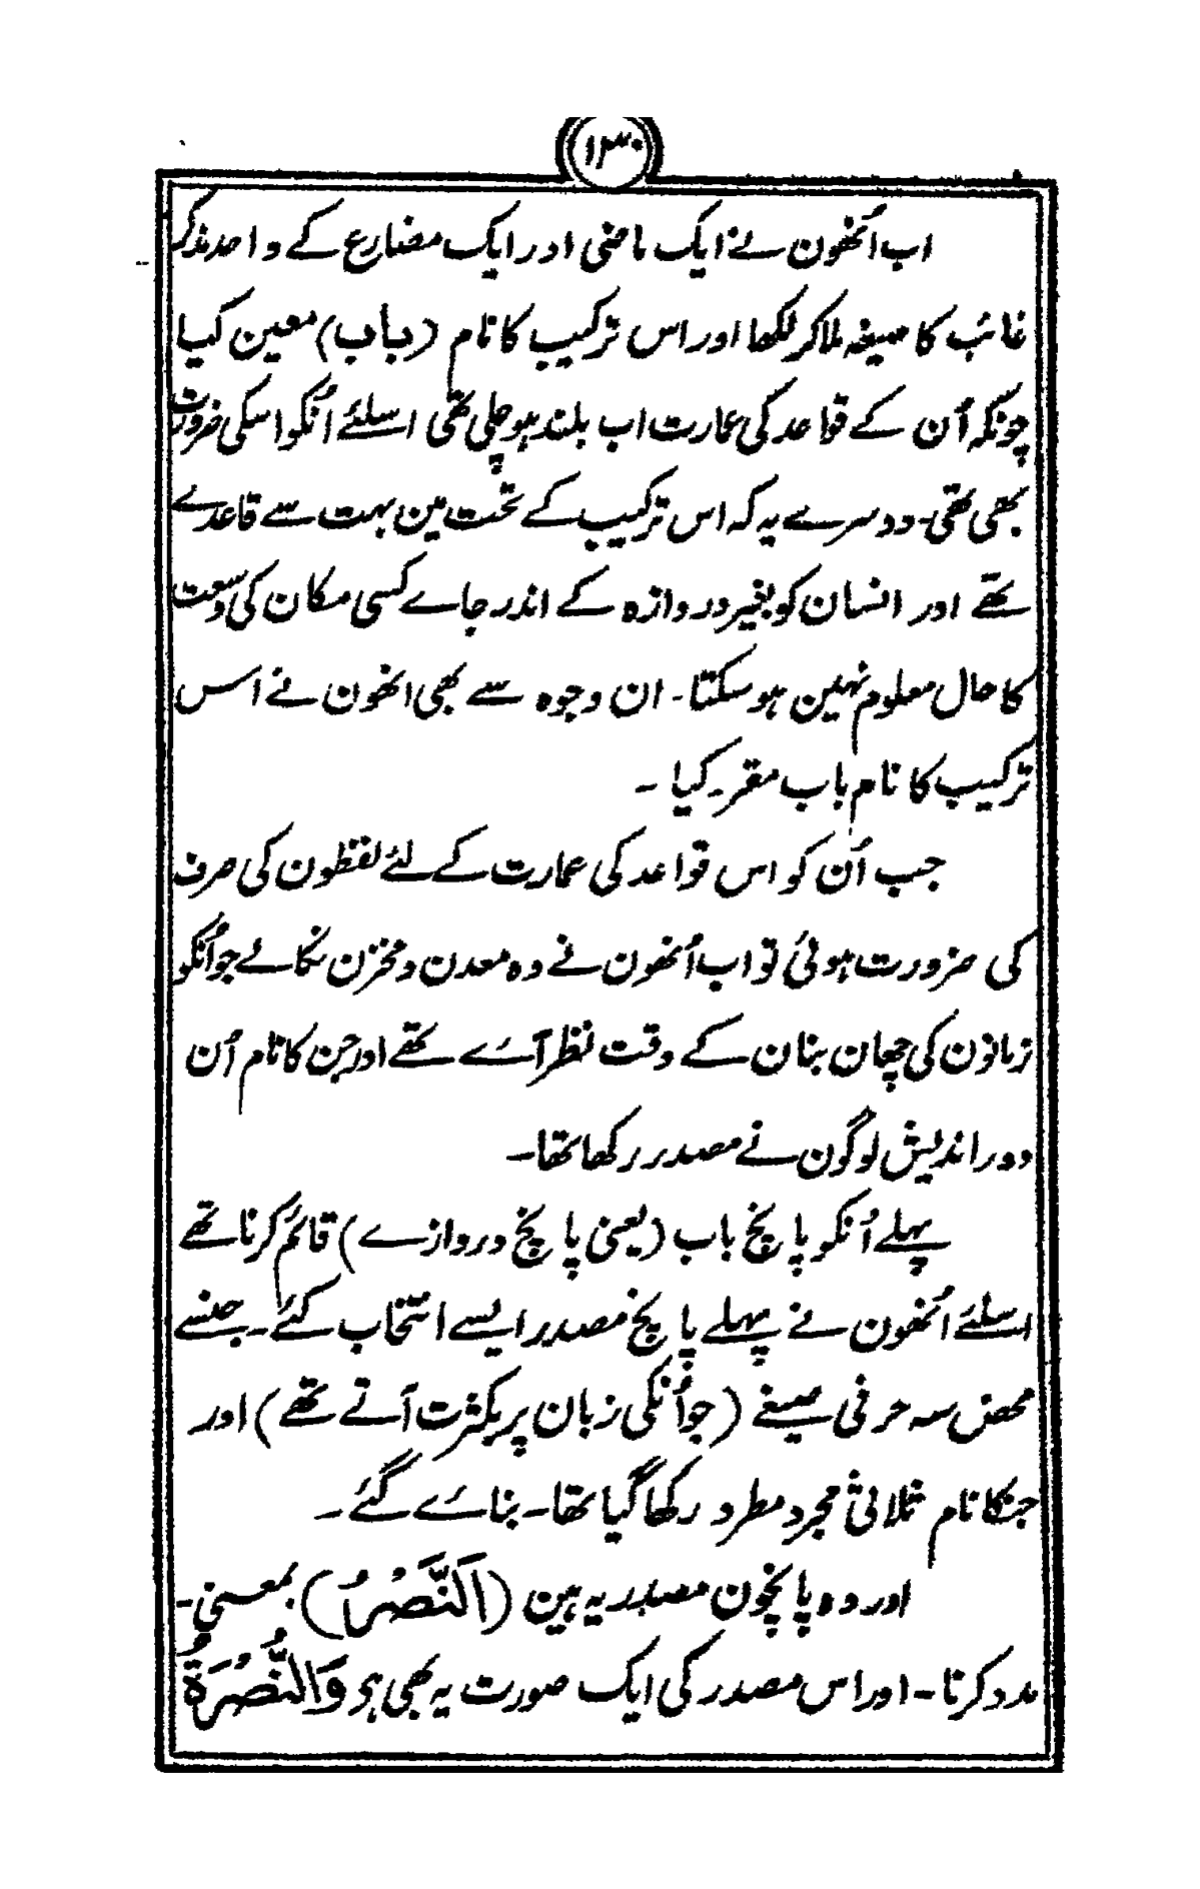 ۱۳۰
اب اُنھون نے ایک ماضی اور ایک مضارع کے واحد مذکر
غائب کا صیغہ ملا کر لکھا اور اس ترکیب کا نام (باب) معین کیا
چونکہ اُن کے قواعد کی عمارت اب بلند ہو چلی تھی اسلئے اُنکو اسکی ضرورت
بھی تھی۔ دوسرے یہ کہ اس ترکیب کے تحت مین بہت سے قاعدے
تھے اور انسان کو بغیر دروازہ کے اندر جاے کسی مکان کی وسعت
کا حال معلوم نہین ہو سکتا۔ ان وجوہ سے بھی انھون نے اس
ترکیب کا نام باب مقرر کیا ۔
جب اُن کو اس قواعد کی عمارت کے لئے لفظون کی صرف
کی ضرورت ہوئی تو اب اُنھون نے وہ معدن و مخزن نکالے جو اُنکو
زبانون کی چھان بنان کے وقت نظر آئے تھے اور جن کا نام اُن
دور اندیش لوگون نے مصدر رکھا تھا۔
پہلے اُنکو پانچ باب (یعنی پانچ دروازے) قائم کرنا تھے
اسلئے اُنھون نے پہلے پانچ مصدر ایسے انتخاب کئے۔ جنسے
محض سہ حرفی صیغے (جو اُنکی زبان پر بکثرت آتے تھے) اور
جنکا نام ثلاثی مجرد مطرد رکھا گیا تھا۔ بنائے گئے ۔
اور وہ پانچون مصدر یہ ہین (اَلنَّصْرُ) بمعنی۔
مدد کرنا۔ اور اس مصدر کی ایک صورت یہ بھی ہے وَالنُّصْرَةُ